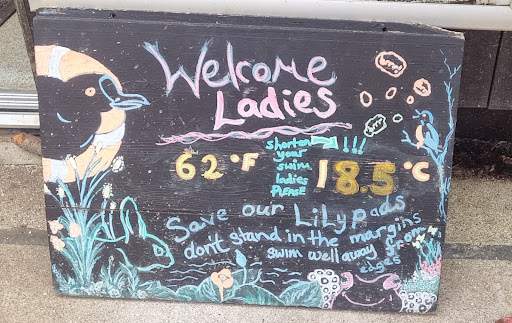 Welcome
Ladies
shorten → !!!
your
swim
ladies
PLEASE
62 °F
18.5 °C
Save our Lilypads
dont stand in the margins
swim well away from
edges